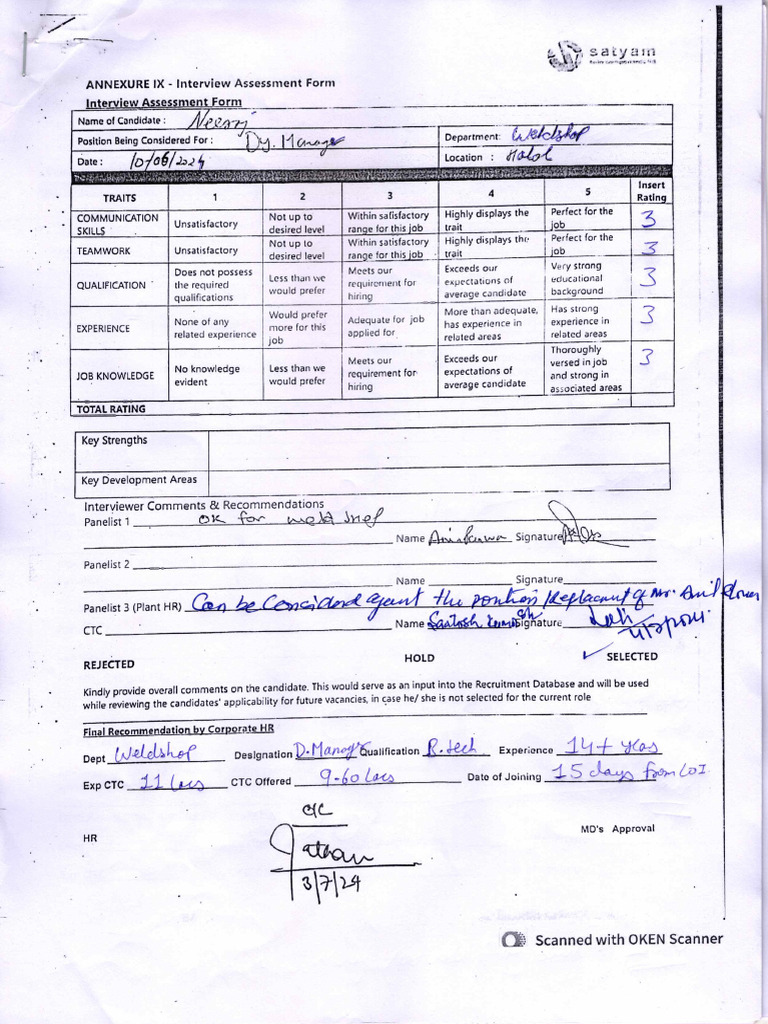 satyam
ANNEXURE IX - Interview Assessment Form
Interview Assessment Form
Name of Candidate : Neeraj
Position Being Considered For : Dy. Manager Department: Weldshop
Date : 10/06/2024 Location : Halol
TRAITS 1 2 3 4 5 Insert Rating
COMMUNICATION SKILLS Unsatisfactory Not up to desired level Within satisfactory range for this job Highly displays the trait Perfect for the job 3
TEAMWORK Unsatisfactory Not up to desired level Within satisfactory range for this job Highly displays the trait Perfect for the job 3
QUALIFICATION Does not possess the required qualifications Less than we would prefer Meets our requirement for hiring Exceeds our expectations of average candidate Very strong educational background 3
EXPERIENCE None of any related experience Would prefer more for this job Adequate for job applied for More than adequate, has experience in related areas Has strong experience in related areas 3
JOB KNOWLEDGE No knowledge evident Less than we would prefer Meets our requirement for hiring Exceeds our expectations of average candidate Thoroughly versed in job and strong in associated areas 3
TOTAL RATING
Key Strengths
Key Development Areas
Interviewer Comments & Recommendations
Panelist 1 OK for weld shop
Name Signature
Panelist 2
Name Signature
Panelist 3 (Plant HR) Can be Considered the position Replacement of Mr. Anil
CTC Name Santosh Signature
REJECTED HOLD ✓ SELECTED
Kindly provide overall comments on the candidate. This would serve as an input into the Recruitment Database and will be used
while reviewing the candidates' applicability for future vacancies, in case he/ she is not selected for the current role
Final Recommendation by Corporate HR
Dept Weldshop Designation D.Manager Qualification B.tech Experience 14+ yeas
Exp CTC 11 Lacs CTC Offered 9-60 Lacs Date of Joining 15 days from LOI.
HR MD's Approval
3/7/24
Scanned with OKEN Scanner